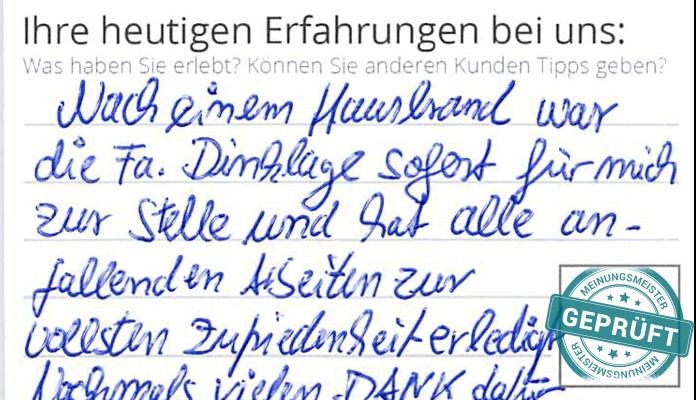 Ihre heutigen Erfahrungen bei uns:
Was haben Sie erlebt? Können Sie anderen Kunden Tipps geben?
Nach einem Hausbrand war
die Fa. Dinklage sofort für mich
zur Stelle und hat alle an-
fallenden Arbeiten zur
vollsten Zufriedenheit erledigt
Nochmals vielen DANK dafür
MEINUNGSMEISTER
GEPRÜFT
MEINUNGSMEISTER